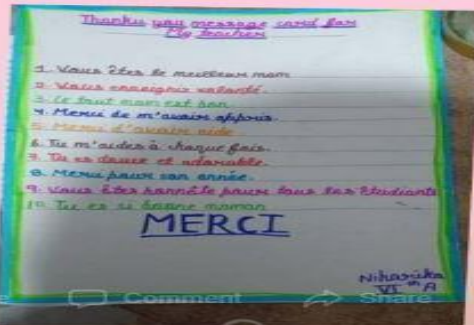 Thanku you message card for
My teacher
1. Vous êtes le meilleur mom
2. Vous enseignez volonté.
3. Le tout mom est bon
4. Merci de m'avoir appris.
5. Merci d'avoir aidé
6. Tu m'aides à chaque fois.
7. Tu es douce et adorable.
8. Merci pour son année.
9. Vous êtes honnête pour tous les étudiants
10. Tu es si bonne maman
MERCI
Niharika
VI th A
Comment
Share